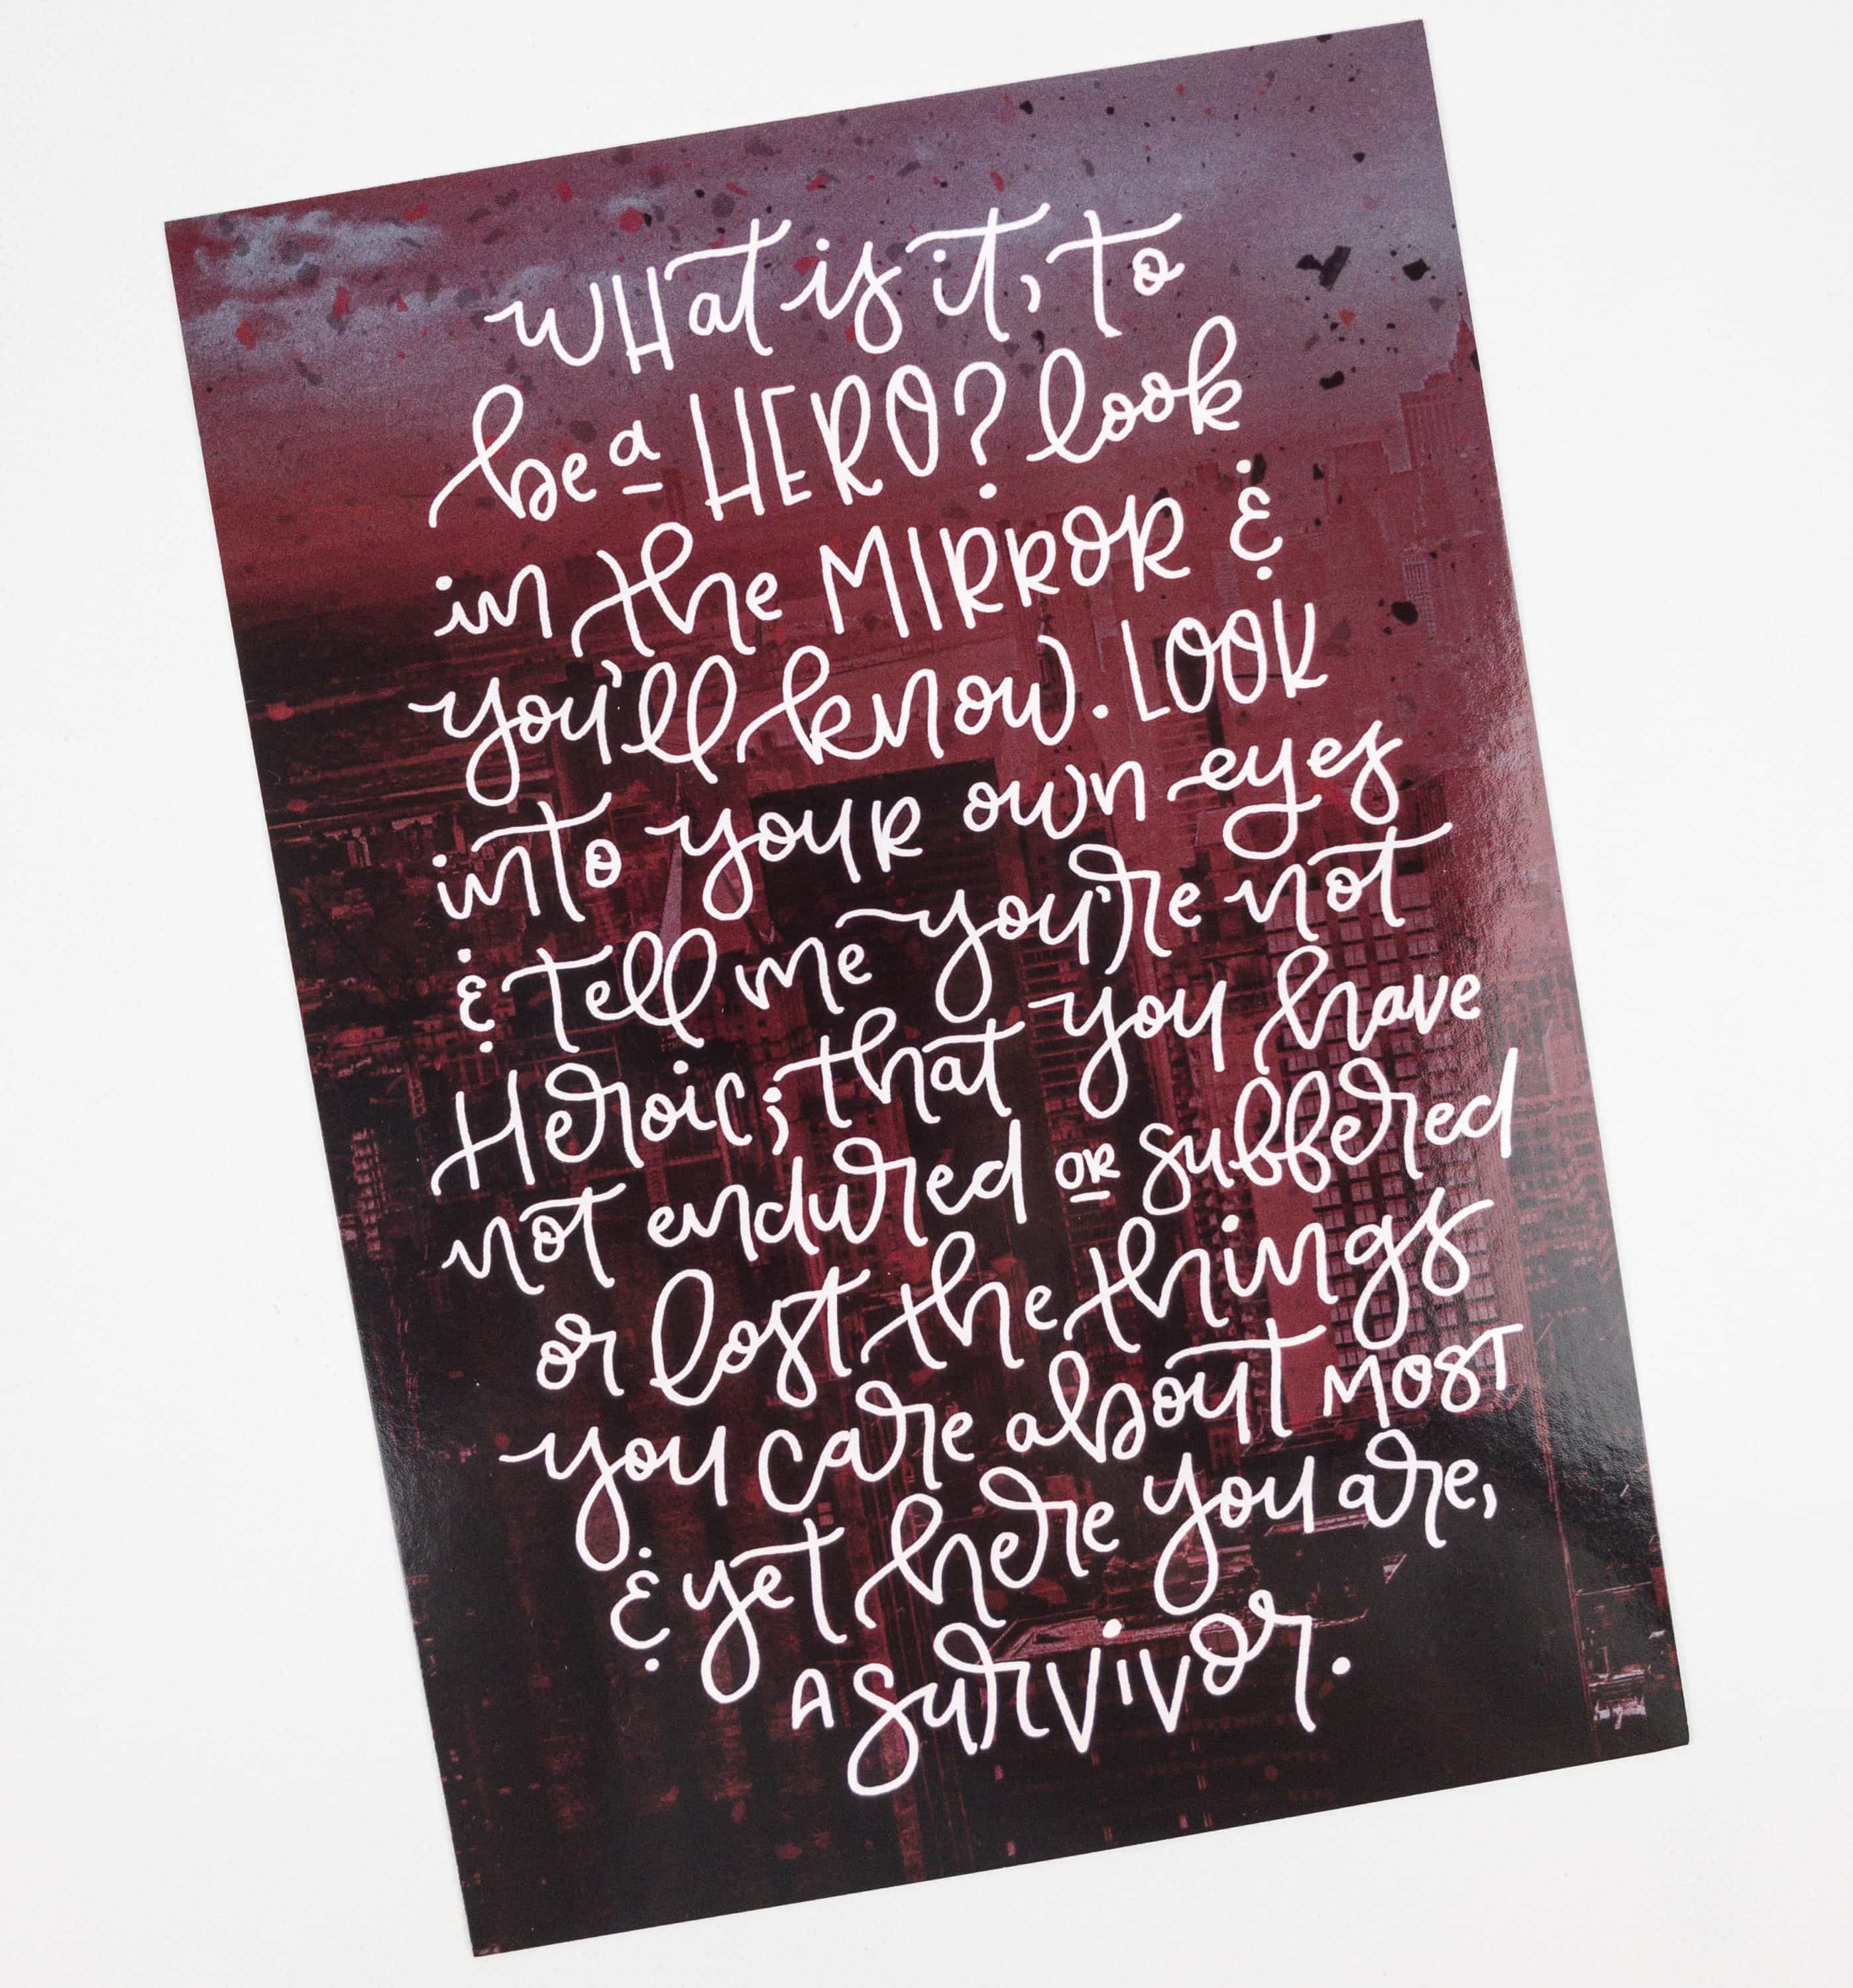 WHat is it, to
be a HERO? look
in the MIRROR &
you'll know. LOOK
into your own eyes
& tell me you're not
Heroic; that you have
not endured or suffered
or lost the things
you care about most
& yet here you are,
a survivor.